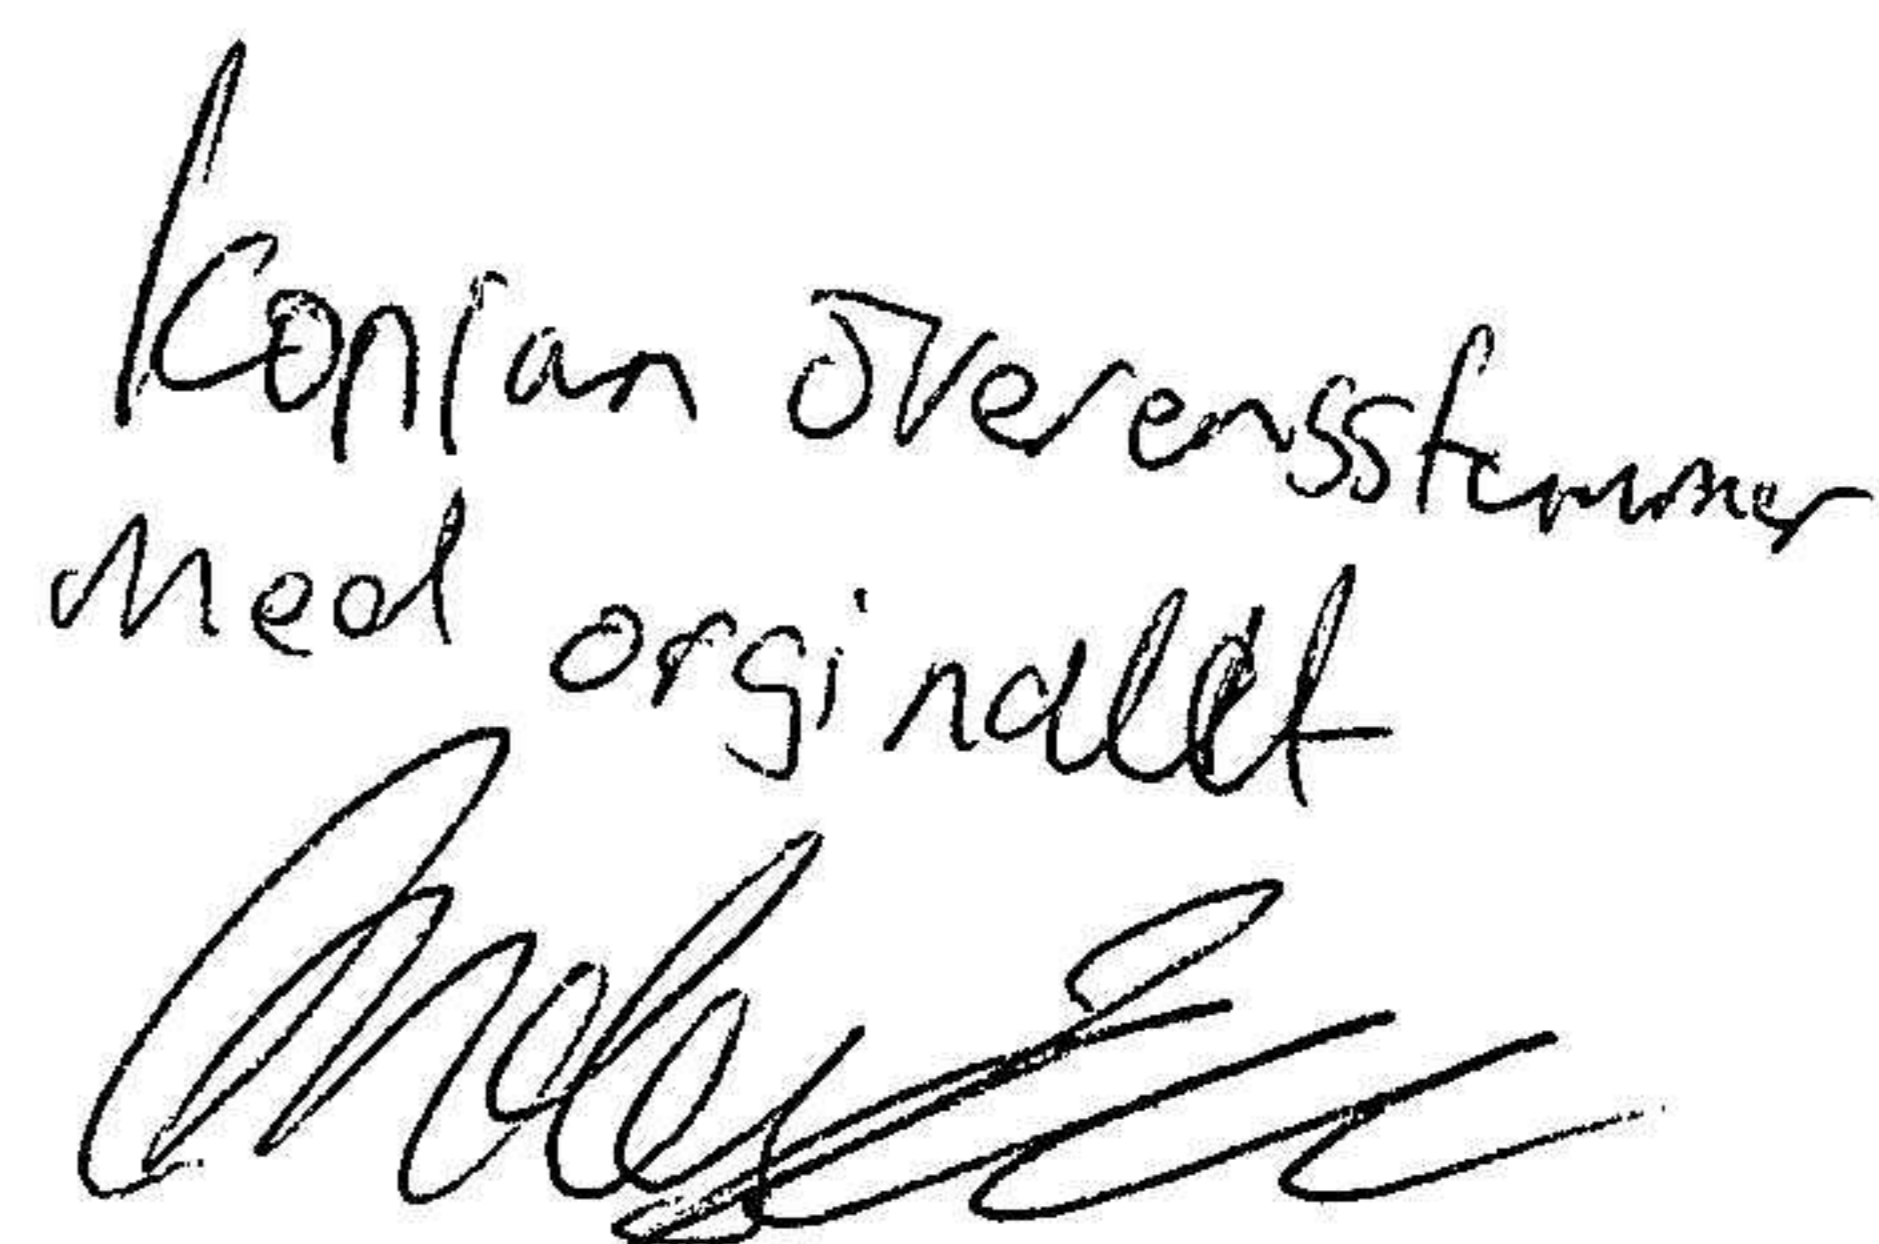 Kopian överensstemmer
med orginalet